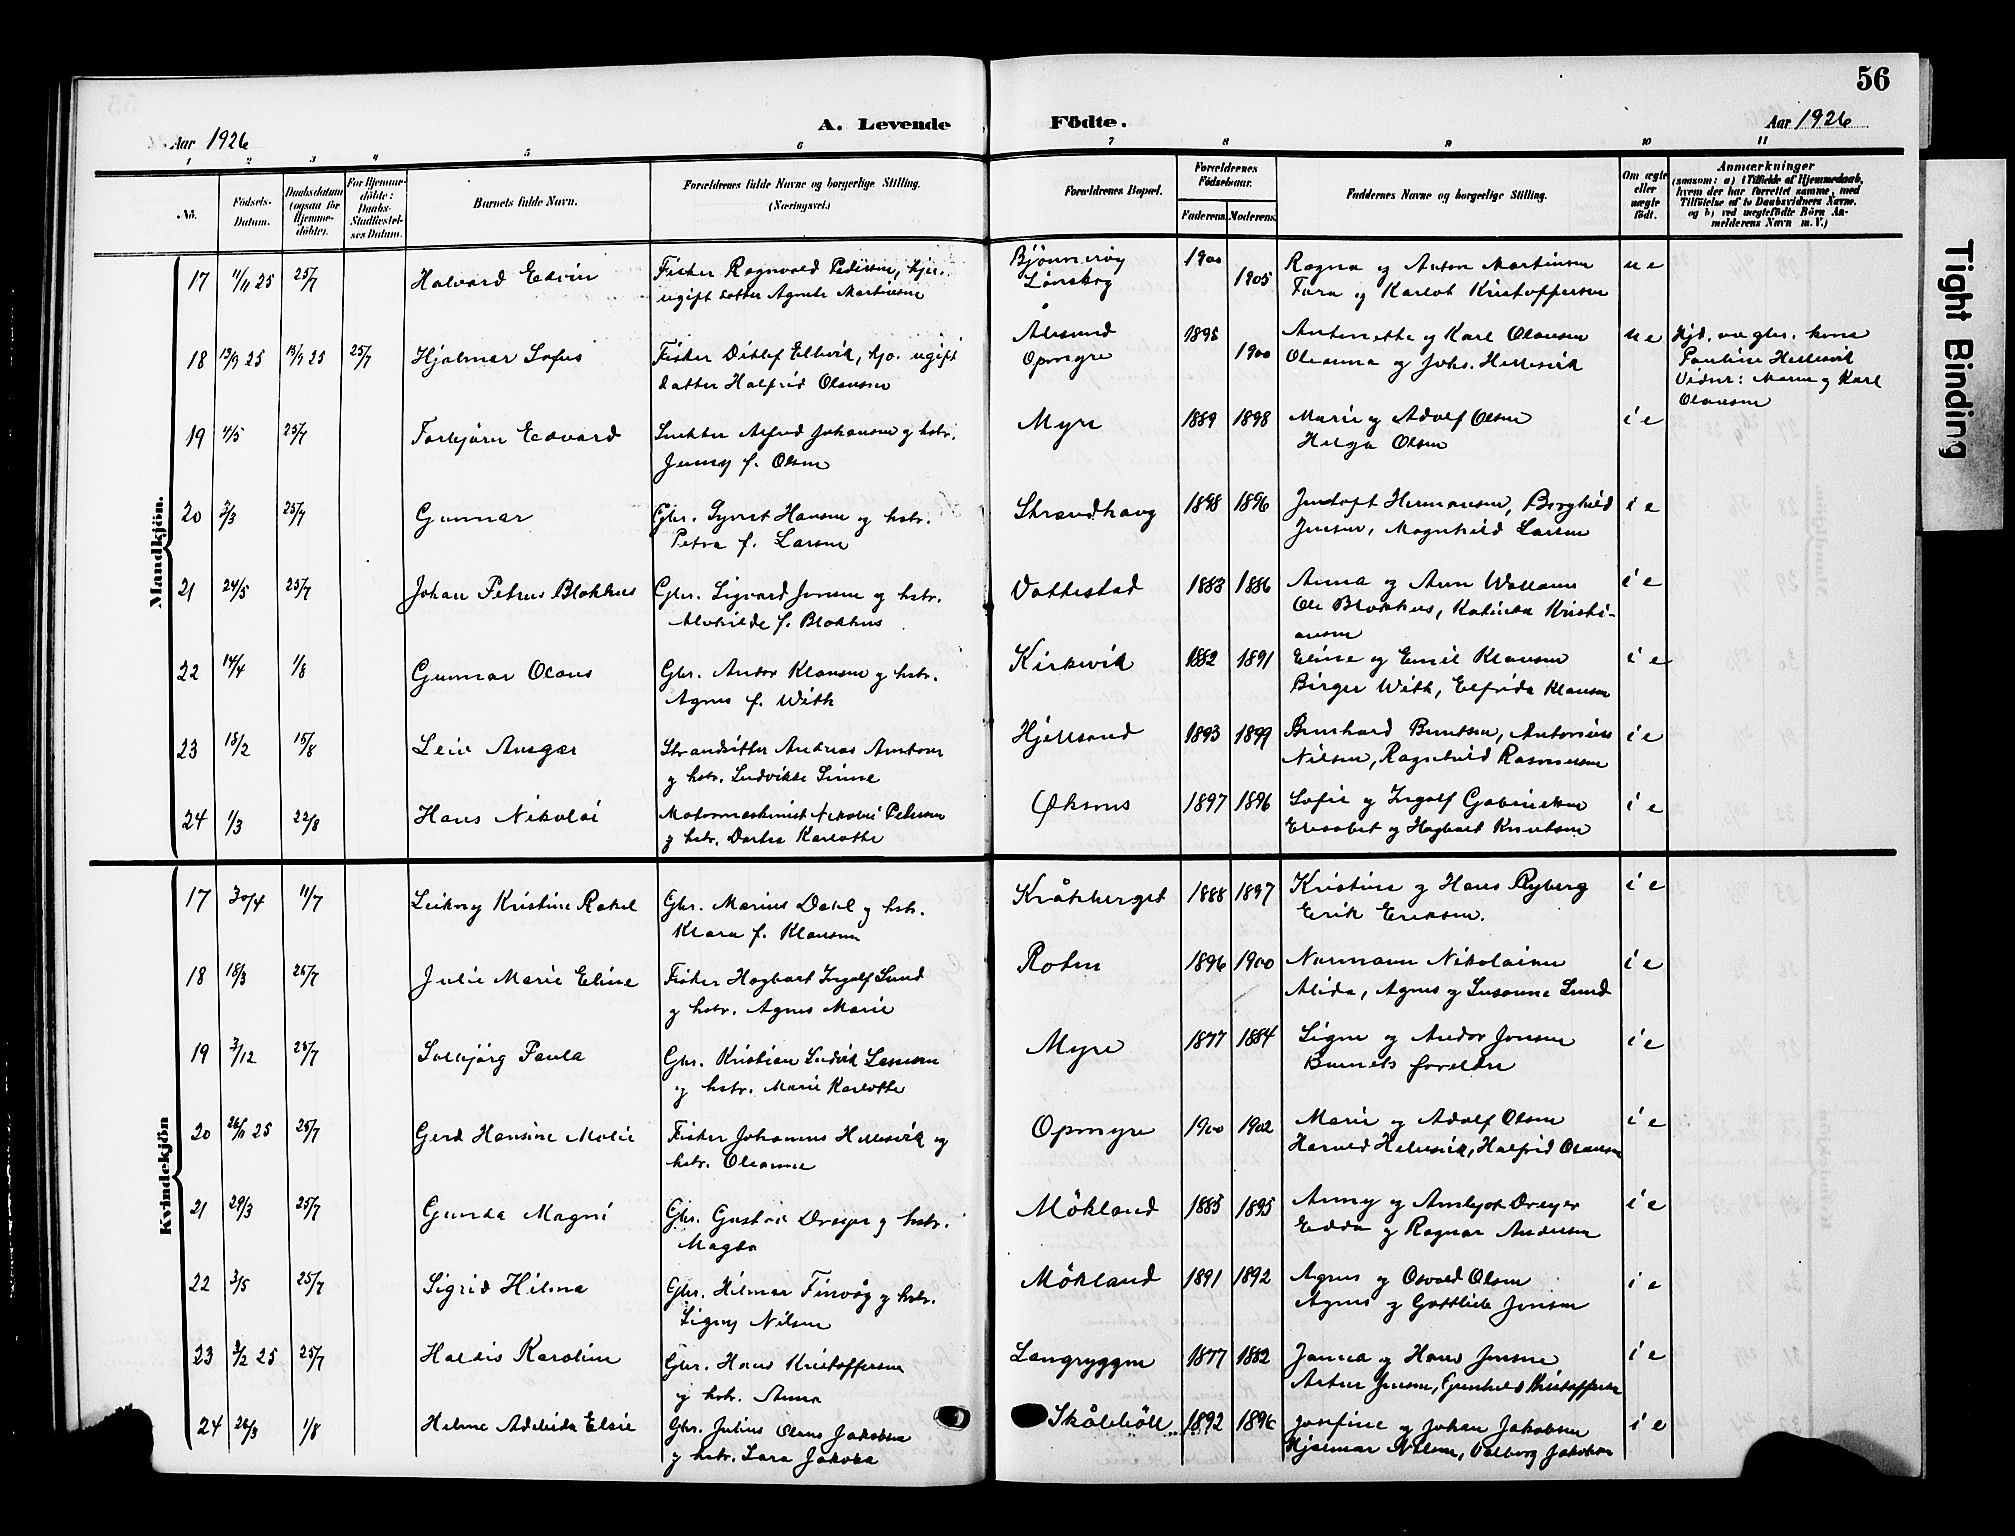 56
Aar 1926
A. Levende Födte.
Aar 1926
1 2 3 4 5 6 7 8 9 10 11
No.
Födsels-Datum.
Daabsdatum (ogsaa for Hjemme-döbte).
For Hjemme-döbte: Daabs-Stadfæstel-ses Datum.
Barnets fulde Navn.
Forældrenes fulde Navne og borgerlige Stilling.
(Næringsvei.)
Forældrenes Bopæl.
Forældrenes Födselsaar.
Faderens. Moderens.
Faddernes Navne og borgerlige Stilling.
Om ægte eller uægte födt.
Anmærkninger
(saasom: a) i Tilfælde af Hjemmedaab,
hvem der har forrettet samme, med
Tilföielse af to Daabsvidners Navne,
og b) ved uægtefödte Börn An-
melderens Navn m. V.)
Mandkjön.
17 11/11 25 25/7 Halvard Edvin Fisker Ragnvald Pedersen, hjer. Bjönnerøy 1900 Ragna og Anton Martinsen u e
ugift datter Agnete Martinsen Lönskog 1905 Tora og Karlot Kristoffersen
18 13/9 25 13/9 25 25/7 Hjalmar Sofus Fisker Ditlef Ellevik, hjo. ugift Ålesund 1895 Antonette og Karl Olausen u e Hjd. av gbr. kona
datter Halfrid Olaussen Opmyre 1900 Oleanna og Johs. Hellesvik Pauline Hellesvik
Vidner: Maren og Karl
Olausen
19 4/5 25/7 Torbjörn Edvard Snekker Alfred Johansen og hstr. Myre 1889 1898 Marie og Adolf Olsen i e
Jenny f. Olsen Helga Olsen
20 2/3 25/7 Gunnar Gbr. Synret Hansen og hstr. Strandhaug 1898 1896 Hermansen, Borghild i e
Petra f. Larsen Jensen, Magnhild Larsen
21 24/5 25/7 Johan Petrus Blokhus Gbr. Sigvard Jensen og hstr. Vottestad 1883 1886 Anna og i e
Alvhilde f. Blokhus Ole Blokhus, Katinka Kristi-
ansen
22 14/4 1/8 Gunnar Olaus Gbr. Andor Klausen og hstr. Kirkevik 1882 1891 Eline og Emil Klausen i e
Agnes f. With Birger With, Elfrida Klausen
23 18/2 15/8 Leiv Ansgar Strandsitter Andreas Antonsen Hjellsand 1893 1899 Bernhard Berntsen, Antonius i e
og hstr. Ludvikke Sinne Nilsen, Ragnhild Rasmussen
24 1/3 22/8 Hans Nikolai Motormaskinist Nikolai Petersen Øksnes 1897 1896 Sofie og Ingolf Gabrielsen i e
og hstr. Dortea Karlotte Elisabet og Hagbart Knutsen
Kvindekjön
17 30/4 11/7 Leikny Kristine Rakel Gbr. Marius Dahl og hstr. Kråkberget 1888 1897 Kristine og Hans Ryberg i e
Klara f. Klausen Erik Eriksen.
18 18/3 25/7 Julie Marie Eline Fisker Hagbart Ingolf Lund Roten 1896 1900 Normann Nikolaisen i e
og hstr. Agnes Marie Alida, Agnes og Susanne Lund
19 3/12 25/7 Solbjörg Paula Gbr. Kristian Ludvik Larsen Myre 1877 1884 Signe og Andor Jensen i e
og hstr. Marie Karlotte Barnets foreldre
20 26/11 25 25/7 Gerd Hansine Malie Fisker Johannes Hellesvik og Opmyre 1900 1902 Marie og Adolf Olsen i e
hstr. Oleanne Harald Hellesvik, Halfrid Olausen
21 29/3 25/7 Gunda Magni Gbr. Gustav Dreyer og hstr. Mökland 1885 1895 Anny og Arnljot Dreyer i e
Magda Edda og Ragnar Andersen
22 3/5 25/7 Sigrid Hilma Gbr. Hilmar Finvåg og hstr. Mökland 1891 1892 Agnes og Osvald Olsen i e
Signy Nilsen Agnes og Gottlieb Jensen
23 3/2 25 25/7 Haldis Karoline Gbr. Hans Kristoffersen Langryggen 1877 1882 Janna og Hans Jensen i e
og hstr. Anna Artur Jensen, Gunhild Kristoffersen
24 26/3 1/8 Helene Adeleida Elsie Gbr. Julius Olaus Jakobsen Skåleböll 1892 1896 Josefine og Johan Jakobsen i e
og hstr. Lara Jakoba Hjalmar Nilsen, Valborg Jakobsen
Tight Binding